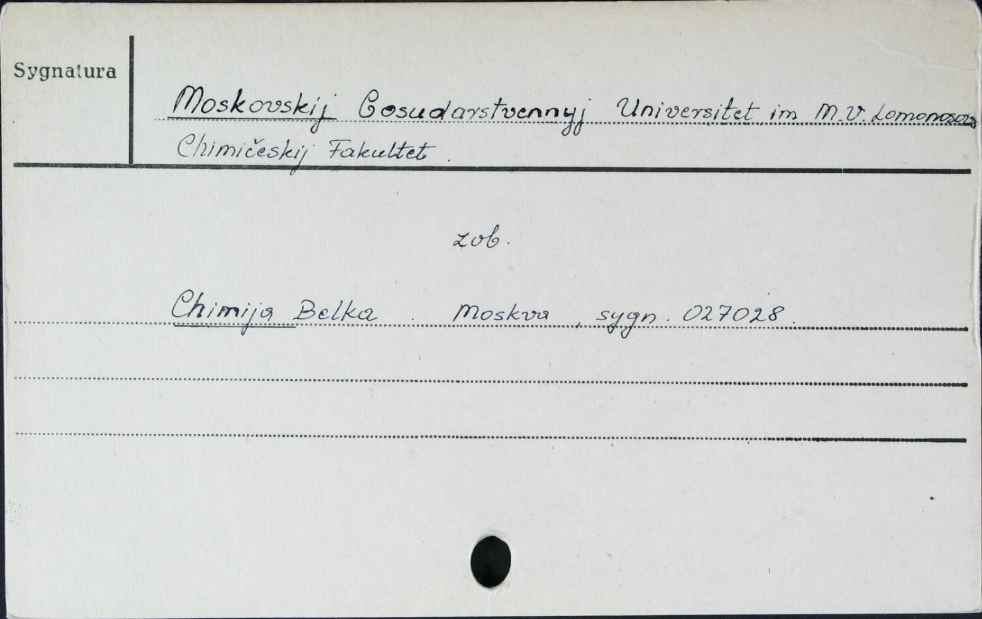 Sygnatura
Moskovskij Gosudarstvennyj Universitet im M.V. Lomonosova
Chimičeskij Fakultet.
zob.
Chimija Belka. Moskva, sygn. 027028.